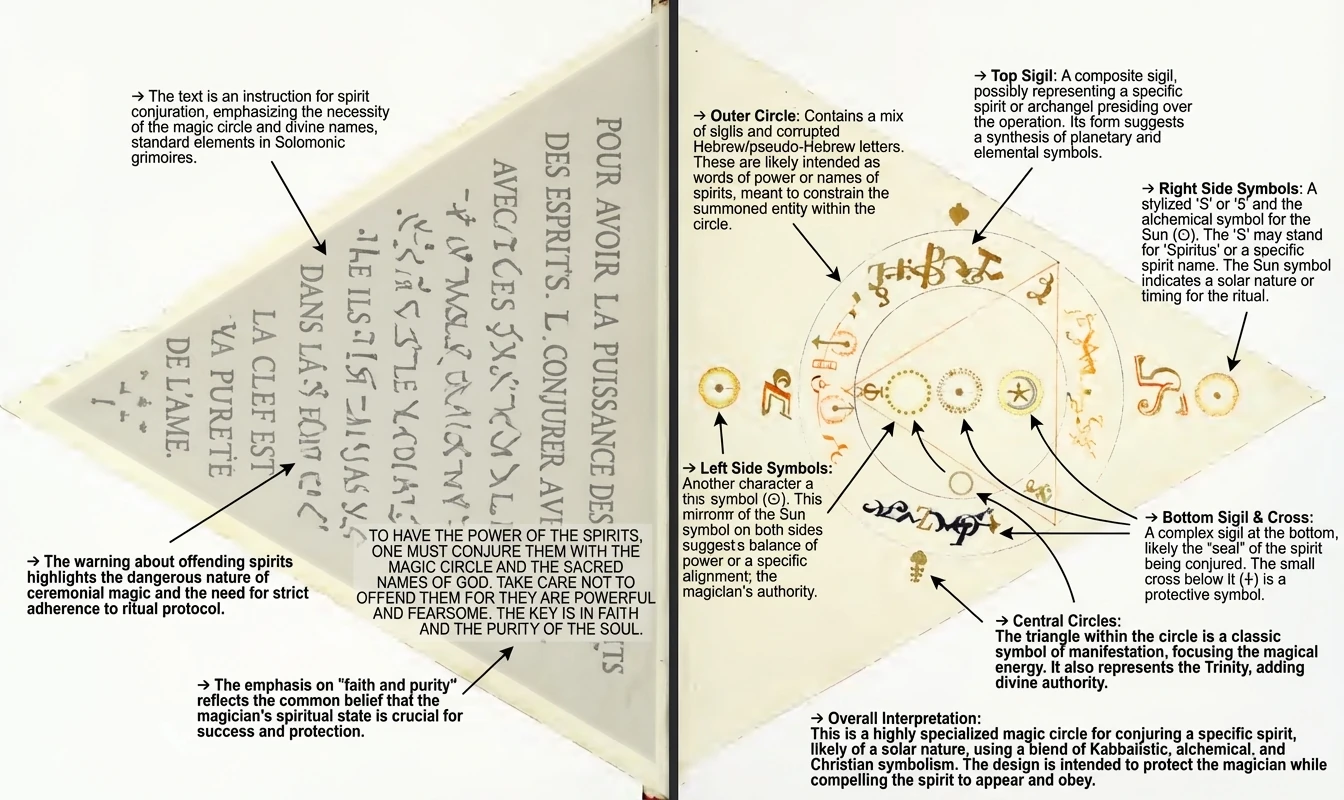 → The text is an instruction for spirit
conjuration, emphasizing the necessity
of the magic circle and divine names,
standard elements in Solomonic
grimoires.
POUR AVOIR LA PUISSANCE DES
DES ESPRITS. L CONJURER AVE
AVEC
CES
DANS LA
LA CLEF EST
VA PURETÉ
DE L'ÂME.
TO HAVE THE POWER OF THE SPIRITS,
ONE MUST CONJURE THEM WITH THE
MAGIC CIRCLE AND THE SACRED
NAMES OF GOD. TAKE CARE NOT TO
OFFEND THEM FOR THEY ARE POWERFUL
AND FEARSOME. THE KEY IS IN FAITH
AND THE PURITY OF THE SOUL.
→ The warning about offending spirits
highlights the dangerous nature of
ceremonial magic and the need for strict
adherence to ritual protocol.
→ The emphasis on "faith and purity"
reflects the common belief that the
magician's spiritual state is crucial for
success and protection.
→ Outer Circle: Contains a mix
of slglls and corrupted
Hebrew/pseudo-Hebrew letters.
These are likely intended as
words of power or names of
spirits, meant to constrain the
summoned entity within the
circle.
→ Top Sigil: A composite sigil,
possibly representing a specific
spirit or archangel presiding over
the operation. Its form suggests
a synthesis of planetary and
elemental symbols.
→ Right Side Symbols: A
stylized 'S' or '5' and the
alchemical symbol for the
Sun (⊙). The 'S' may stand
for 'Spiritus' or a specific
spirit name. The Sun symbol
indicates a solar nature or
timing for the ritual.
→ Left Side Symbols:
Another character a
this symbol (⊙). This
mirromr of the Sun
symbol on both sides
suggests balance of
power or a specific
alignment; the
maglclan's authority.
→ Bottom Sigil & Cross:
A complex sigil at the bottom,
likely the "seal" of the spirit
being conjured. The small
cross below It (+) is a
protective symbol.
→ Central Circles:
The triangle within the circle is a classic
symbol of manifestation, focusing the magical
energy. It also represents the Trinity, adding
divine authority.
→ Overall Interpretation:
This is a highly specialized magic circle for conjuring a specific spirit,
likely of a solar nature, using a blend of Kabbalistic, alchemical. and
Christian symbolism. The design is intended to protect the magician while
compelling the spirit to appear and obey.